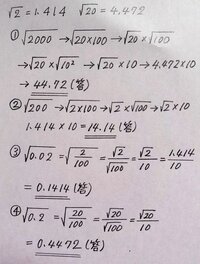 √2 = 1.414 √20 = 4.472
① √2000 → √20×100 → √20 × √100
→ √20 × √10² → √20 × 10 → 4.472×10
→ 44.72 (答)
② √200 → √2×100 → √2 × √100 → √2 × 10
1.414 × 10 = 14.14 (答)
③ √0.02 = √2/100 = √2/√100 = √2/10 = 1.414/10
= 0.1414 (答)
④ √0.2 = √20/100 = √20/√100 = √20/10
= 0.4472 (答)